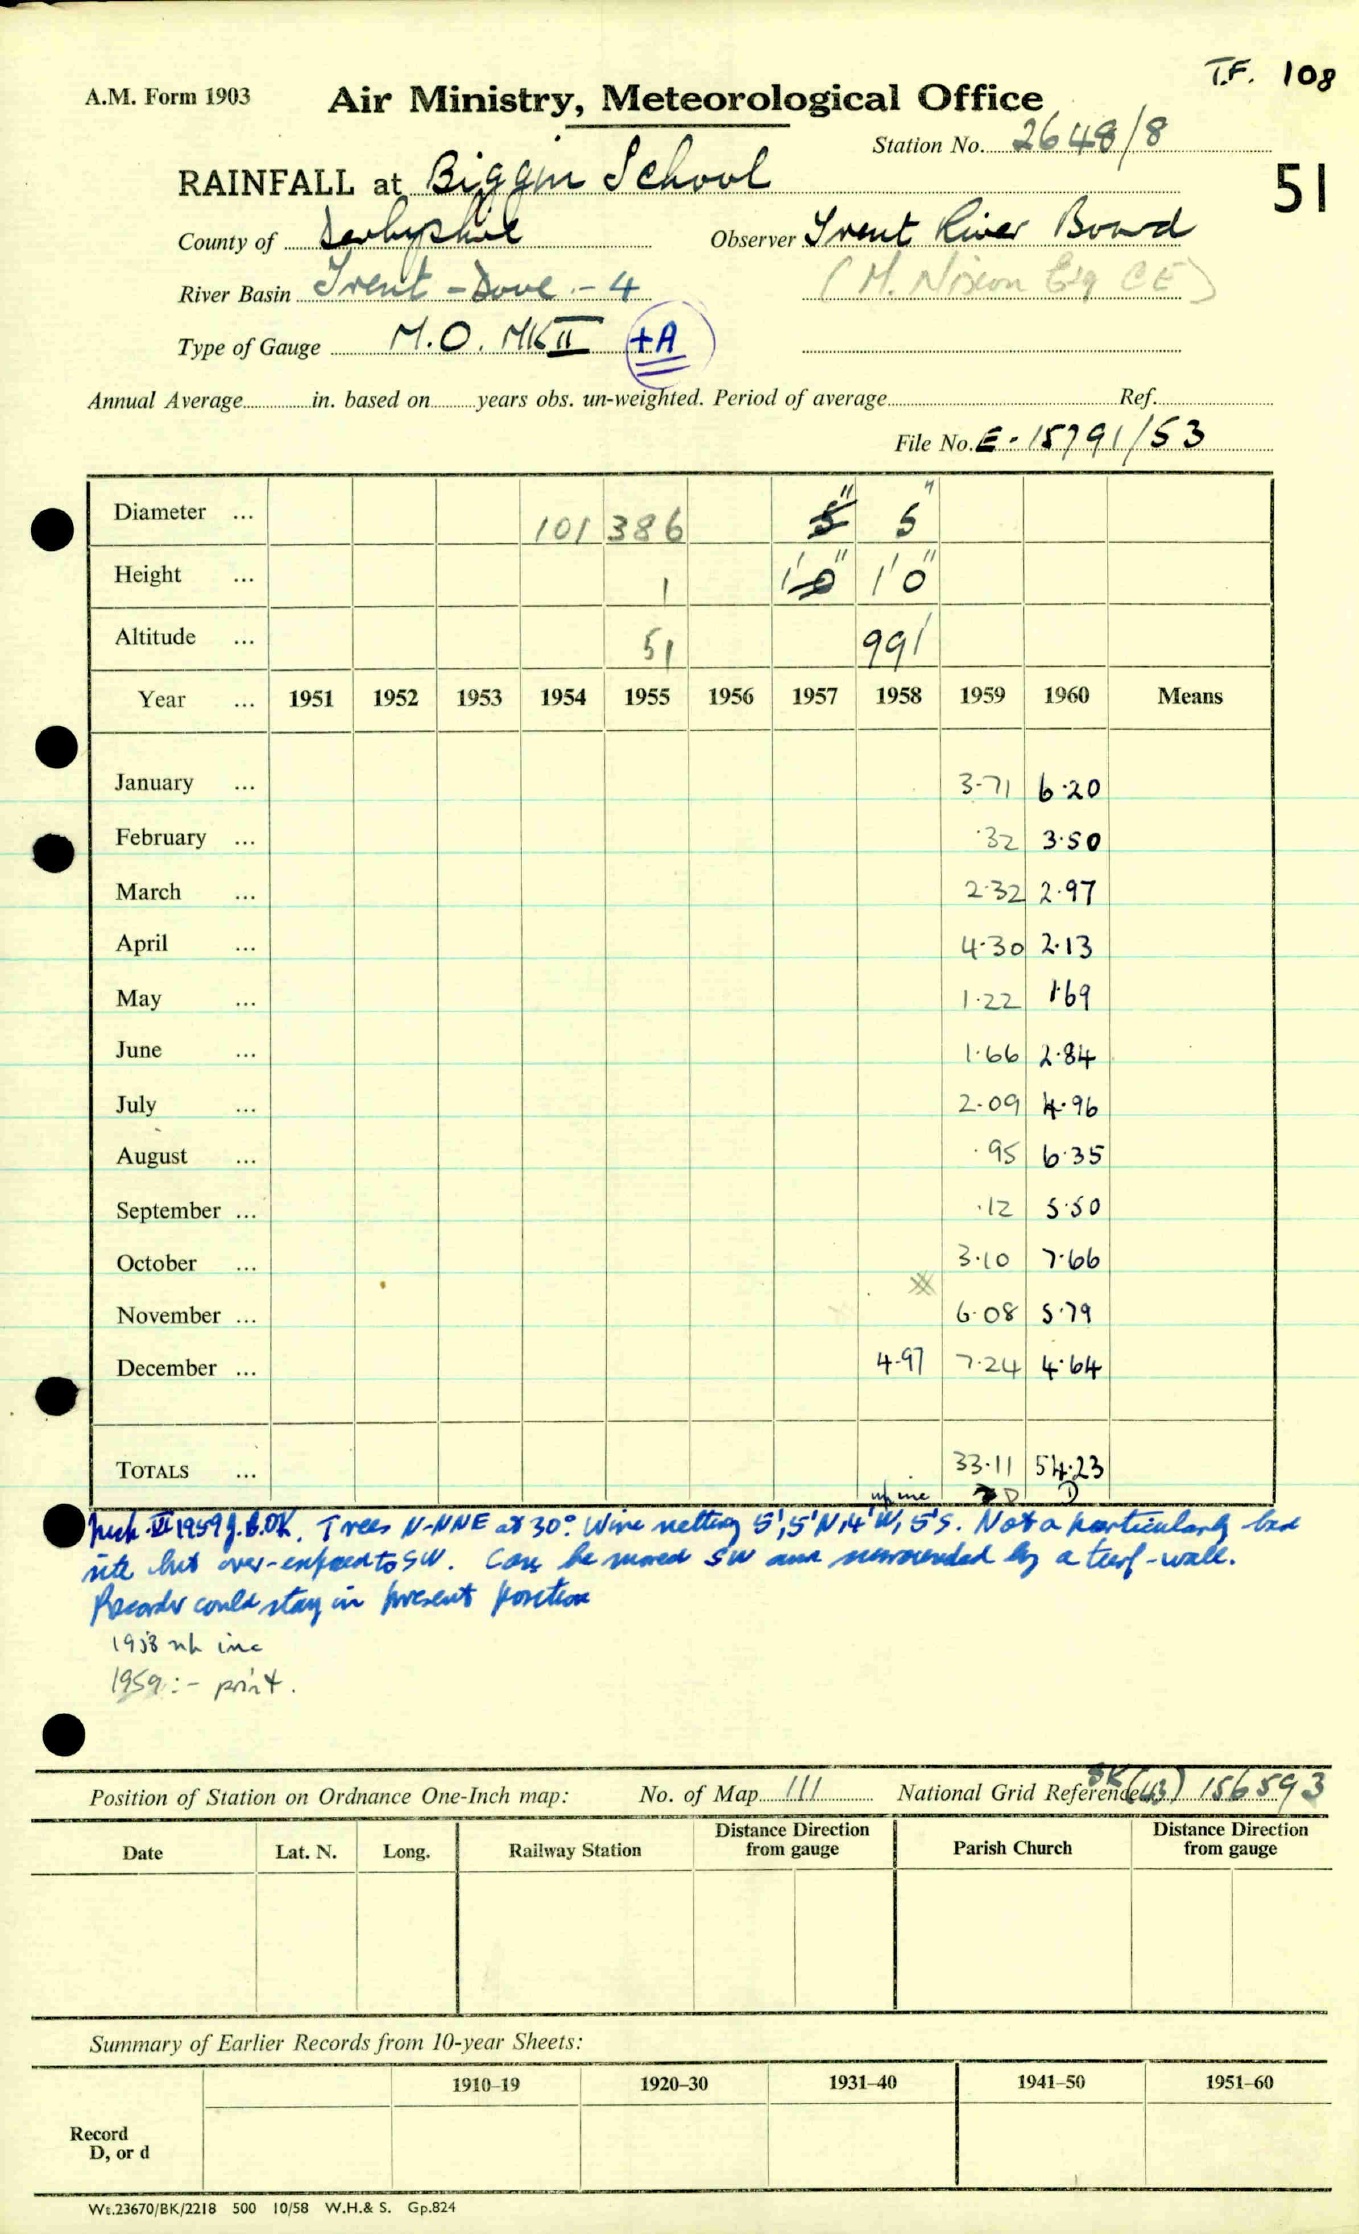 T.F. 108
A.M. Form 1903 Air Ministry, Meteorological Office
Station No. 2648/8
RAINFALL at Biggin School
51
County of Derbyshire Observer Trent River Board
River Basin Trent - Dove - 4 (M. Nixon Esq CE)
Type of Gauge M.O. MK II +A
Annual Average in. based on years obs. un-weighted. Period of average Ref.
File No. E-15791/53
Diameter ... 101 386 5" 5"
Height ... 1 1'0" 1'0"
Altitude ... 51 991'
Year ... 1951 1952 1953 1954 1955 1956 1957 1958 1959 1960 Means
January ... 3.71 6.20
February ... .32 3.50
March ... 2.32 2.97
April ... 4.30 2.13
May ... 1.22 1.69
June ... 1.66 2.84
July ... 2.09 4.96
August ... .95 6.35
September ... .12 5.50
October ... 3.10 7.66
November ... 6.08 5.79
December ... 4.97 7.24 4.64
TOTALS ... 33.11 54.23
D D
VI 1959 J.G. OK. Trees N-NNE at 30°. Wire netting 5', 5'N, 4'W, 5'S. Not a particularly bad
site but over-exposed to SW. Can be moved SW and surrounded by a turf-wall.
Recorder could stay in present position
1958 inc
1959:- print.
Position of Station on Ordnance One-Inch map: No. of Map 111 National Grid Reference SK (43) 156593
Date Lat. N. Long. Railway Station Distance Direction from gauge Parish Church Distance Direction from gauge
Summary of Earlier Records from 10-year Sheets:
1910-19 1920-30 1931-40 1941-50 1951-60
Record
D, or d
Wt.23670/BK/2218 500 10/58 W.H.& S. Gp.824